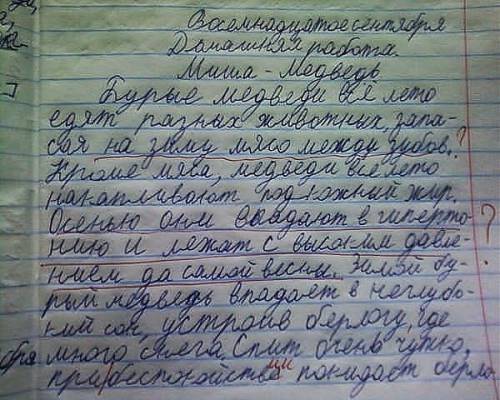 Восемнадцатое сентября
Домашняя работа.
Миша - Медведь
Бурые медведи всё лето
едят разных животных, запа-
сая на зиму мясо между зубов. ?
Кроме мяса, медведи всё лето
накапливают подкожный жир.
Осенью они впадают в гиперто- ?
нию и лежат с высоким давле-
нием до самой весны. Зимой бу-
рый медведь впадает в неглубо-
кий сон, устроив берлогу, где
много снега. Спит очень чутко,
при беспокойстве покидает берло